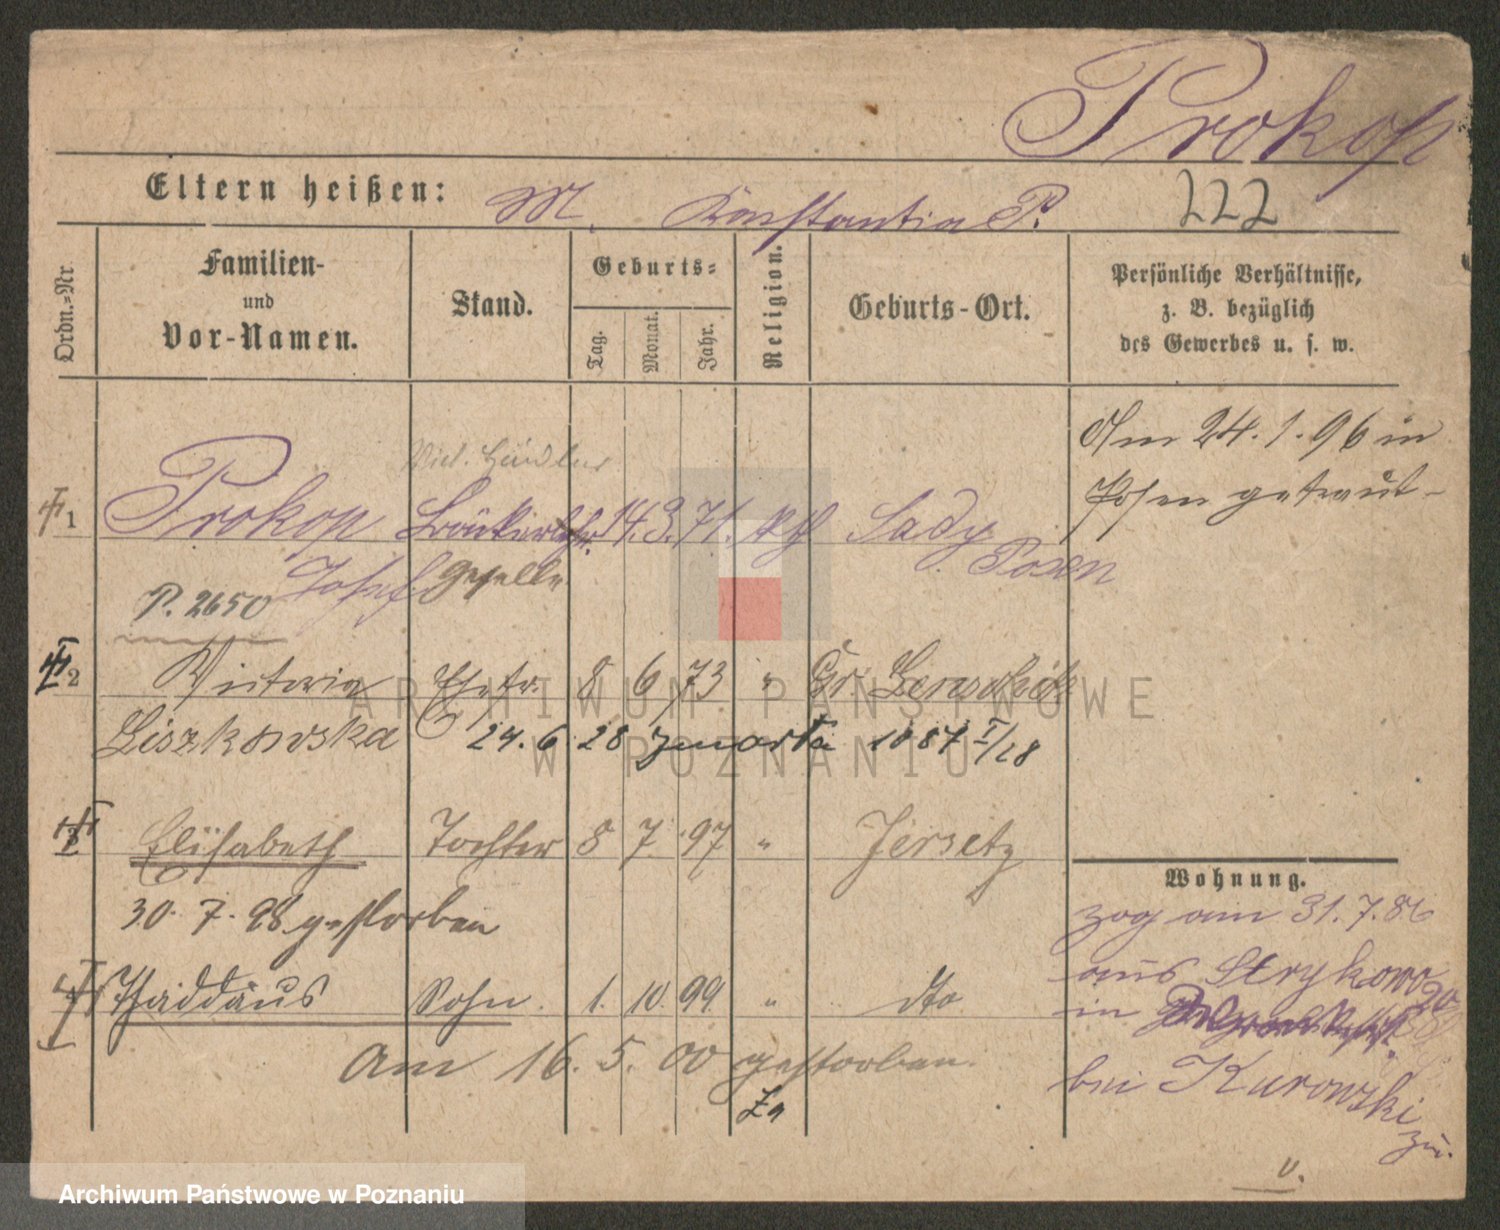 Prokop
Eltern heißen: M. Konstantia P. 222
Ordn.-Nr.
Familien- und Vor-Namen.
Stand.
Geburts-
Tag. Monat. Jahr.
Religion.
Geburts-Ort.
Persönliche Verhältnisse, z. B. bezüglich des Gewerbes u. s. w.
Am 24.1.96 in
Posen getraut-
Händler
1 Prokop 14. 3. 71. kth Sady
Josef Geselle Posen
P. 2650
2 Victoria Ehefr. 8 6 73 " Gr.
Liszkowska 24. 6 28 zmarła 1087 I/28
3 Elisabeth Tochter 8 7 97 " Jersetz
30. 7. 98 gestorben
Thaddäus Sohn. 1. 10. 99. " dto
Am 16. 5. 00 gestorben.
Wohnung.
zog am 31.7.86
aus Strykowo
in
bei Kurowski
zu.
v.
ARCHIWUM PAŃSTWOWE
W POZNANIU
Archiwum Państwowe w Poznaniu